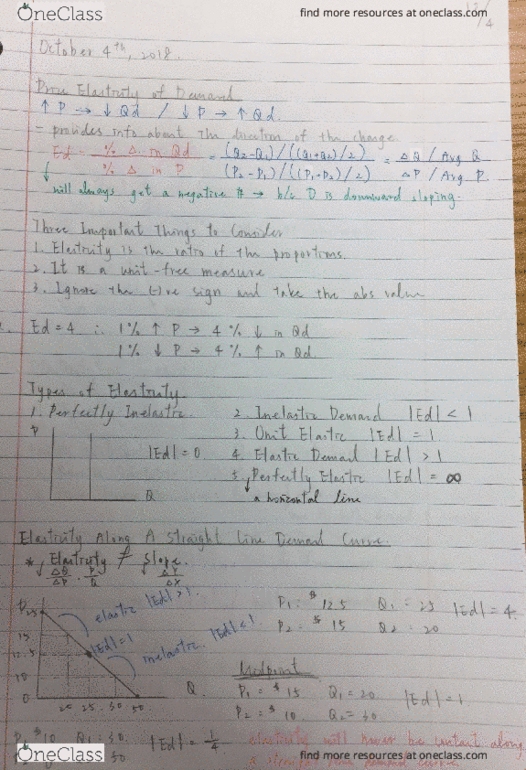 OneClass
find more resources at oneclass.com
October 4th, 2018.
Price Elasticity of Demand
↑ P → ↓ Qd / ↓ P → ↑ Qd.
- provides info about the direction of the change
Ed = % Δ in Qd / % Δ in P = (Q2-Q1)/((Q1+Q2)/2) / (P2-P1)/((P1+P2)/2) = ΔQ / Avg Q / ΔP / Avg P
will always get a negative # → b/c D is downward sloping.
Three Important Things to Consider
1. Elasticity is the ratio of the proportions.
2. It is a unit-free measure
3. Ignore the (-)ve sign and take the abs value
Ed = 4 ∴ 1% ↑ P → 4% ↓ in Qd
1% ↓ P → 4% ↑ in Qd.
Types of Elasticity
1. Perfectly Inelastic
P
|Ed| = 0
Q
2. Inelastic Demand |Ed| < 1
3. Unit Elastic |Ed| = 1
4. Elastic Demand |Ed| > 1
5. Perfectly Elastic |Ed| = ∞
a horizontal line
Elasticity Along A Straight Line Demand Curve.
* Elasticity ≠ Slope.
ΔQ/ΔP · P/Q ΔY/ΔX
elastic |Ed| > 1.
|Ed| = 1
inelastic |Ed| < 1.
25
15
12.5
10
0
20 25 30 50
Q.
P1: $12.5 Q1 = 25 |Ed| = 4.
P2: $15 Q2 = 20
Midpoint
P1 = $15 Q1 = 20 |Ed| = 1
P2 = $10 Q2 = 30
P1 $10 Q1 = 30. |Ed| = 1/4
50
elasticity will never be constant along
OneClass
find more resources at oneclass.com